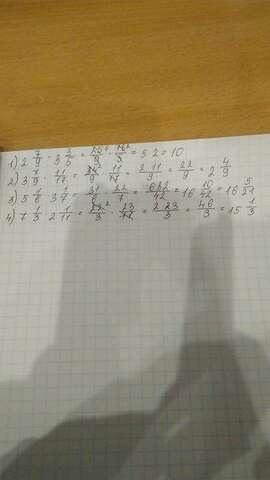 1) 2 7/9 · 3 3/5 = 25/9 · 18²/5 = 5·2 = 10
2) 3 7/9 · 11/17 = 34²/9 · 11/17 = 2·11/9 = 22/9 = 2 4/9
3) 5 1/6 · 3 1/7 = 31/6 · 22/7 = 682/42 = 16 10/42 = 16 5/21
4) 7 1/3 · 2 1/11 = 22²/3 · 23/11 = 2·23/3 = 46/3 = 15 1/3